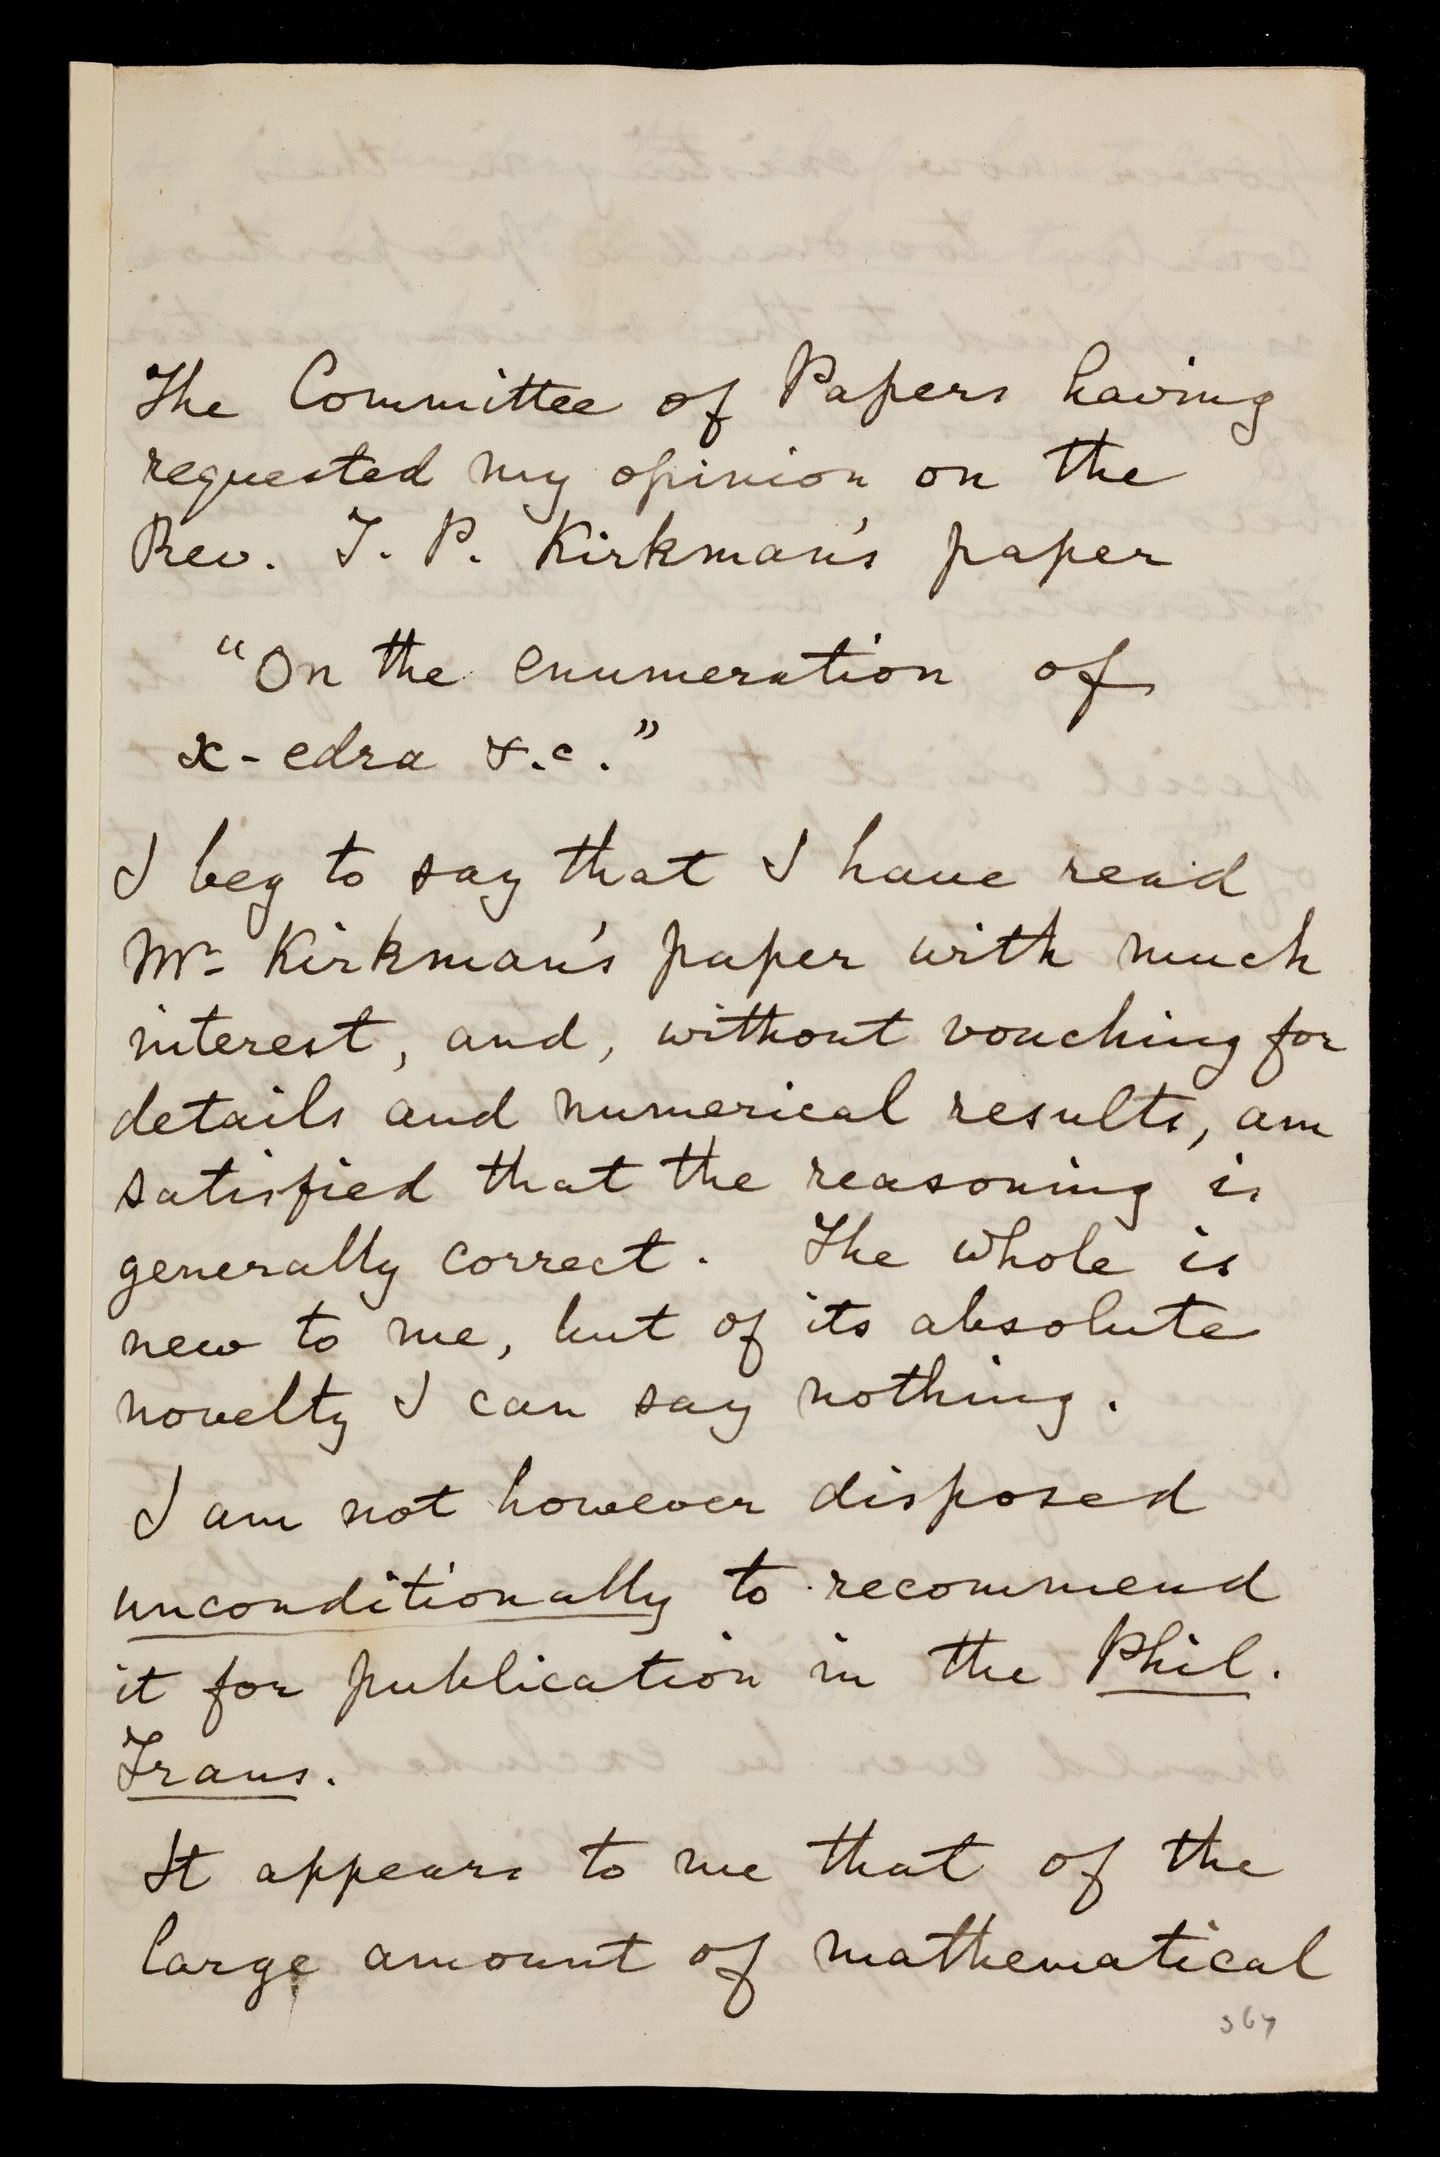 The Committee of Papers having
requested my opinion on the
Rev. T. P. Kirkman's paper
"On the enumeration of
x-edra &.c."
I beg to say that I have read
Mr. Kirkman's paper with much
interest, and, without vouching for
details and numerical results, am
satisfied that the reasoning is
generally correct. The whole is
new to me, but of its absolute
novelty I can say nothing.
I am not however disposed
unconditionally to recommend
it for publication in the Phil.
Trans.
It appears to me that of the
large amount of mathematical
367